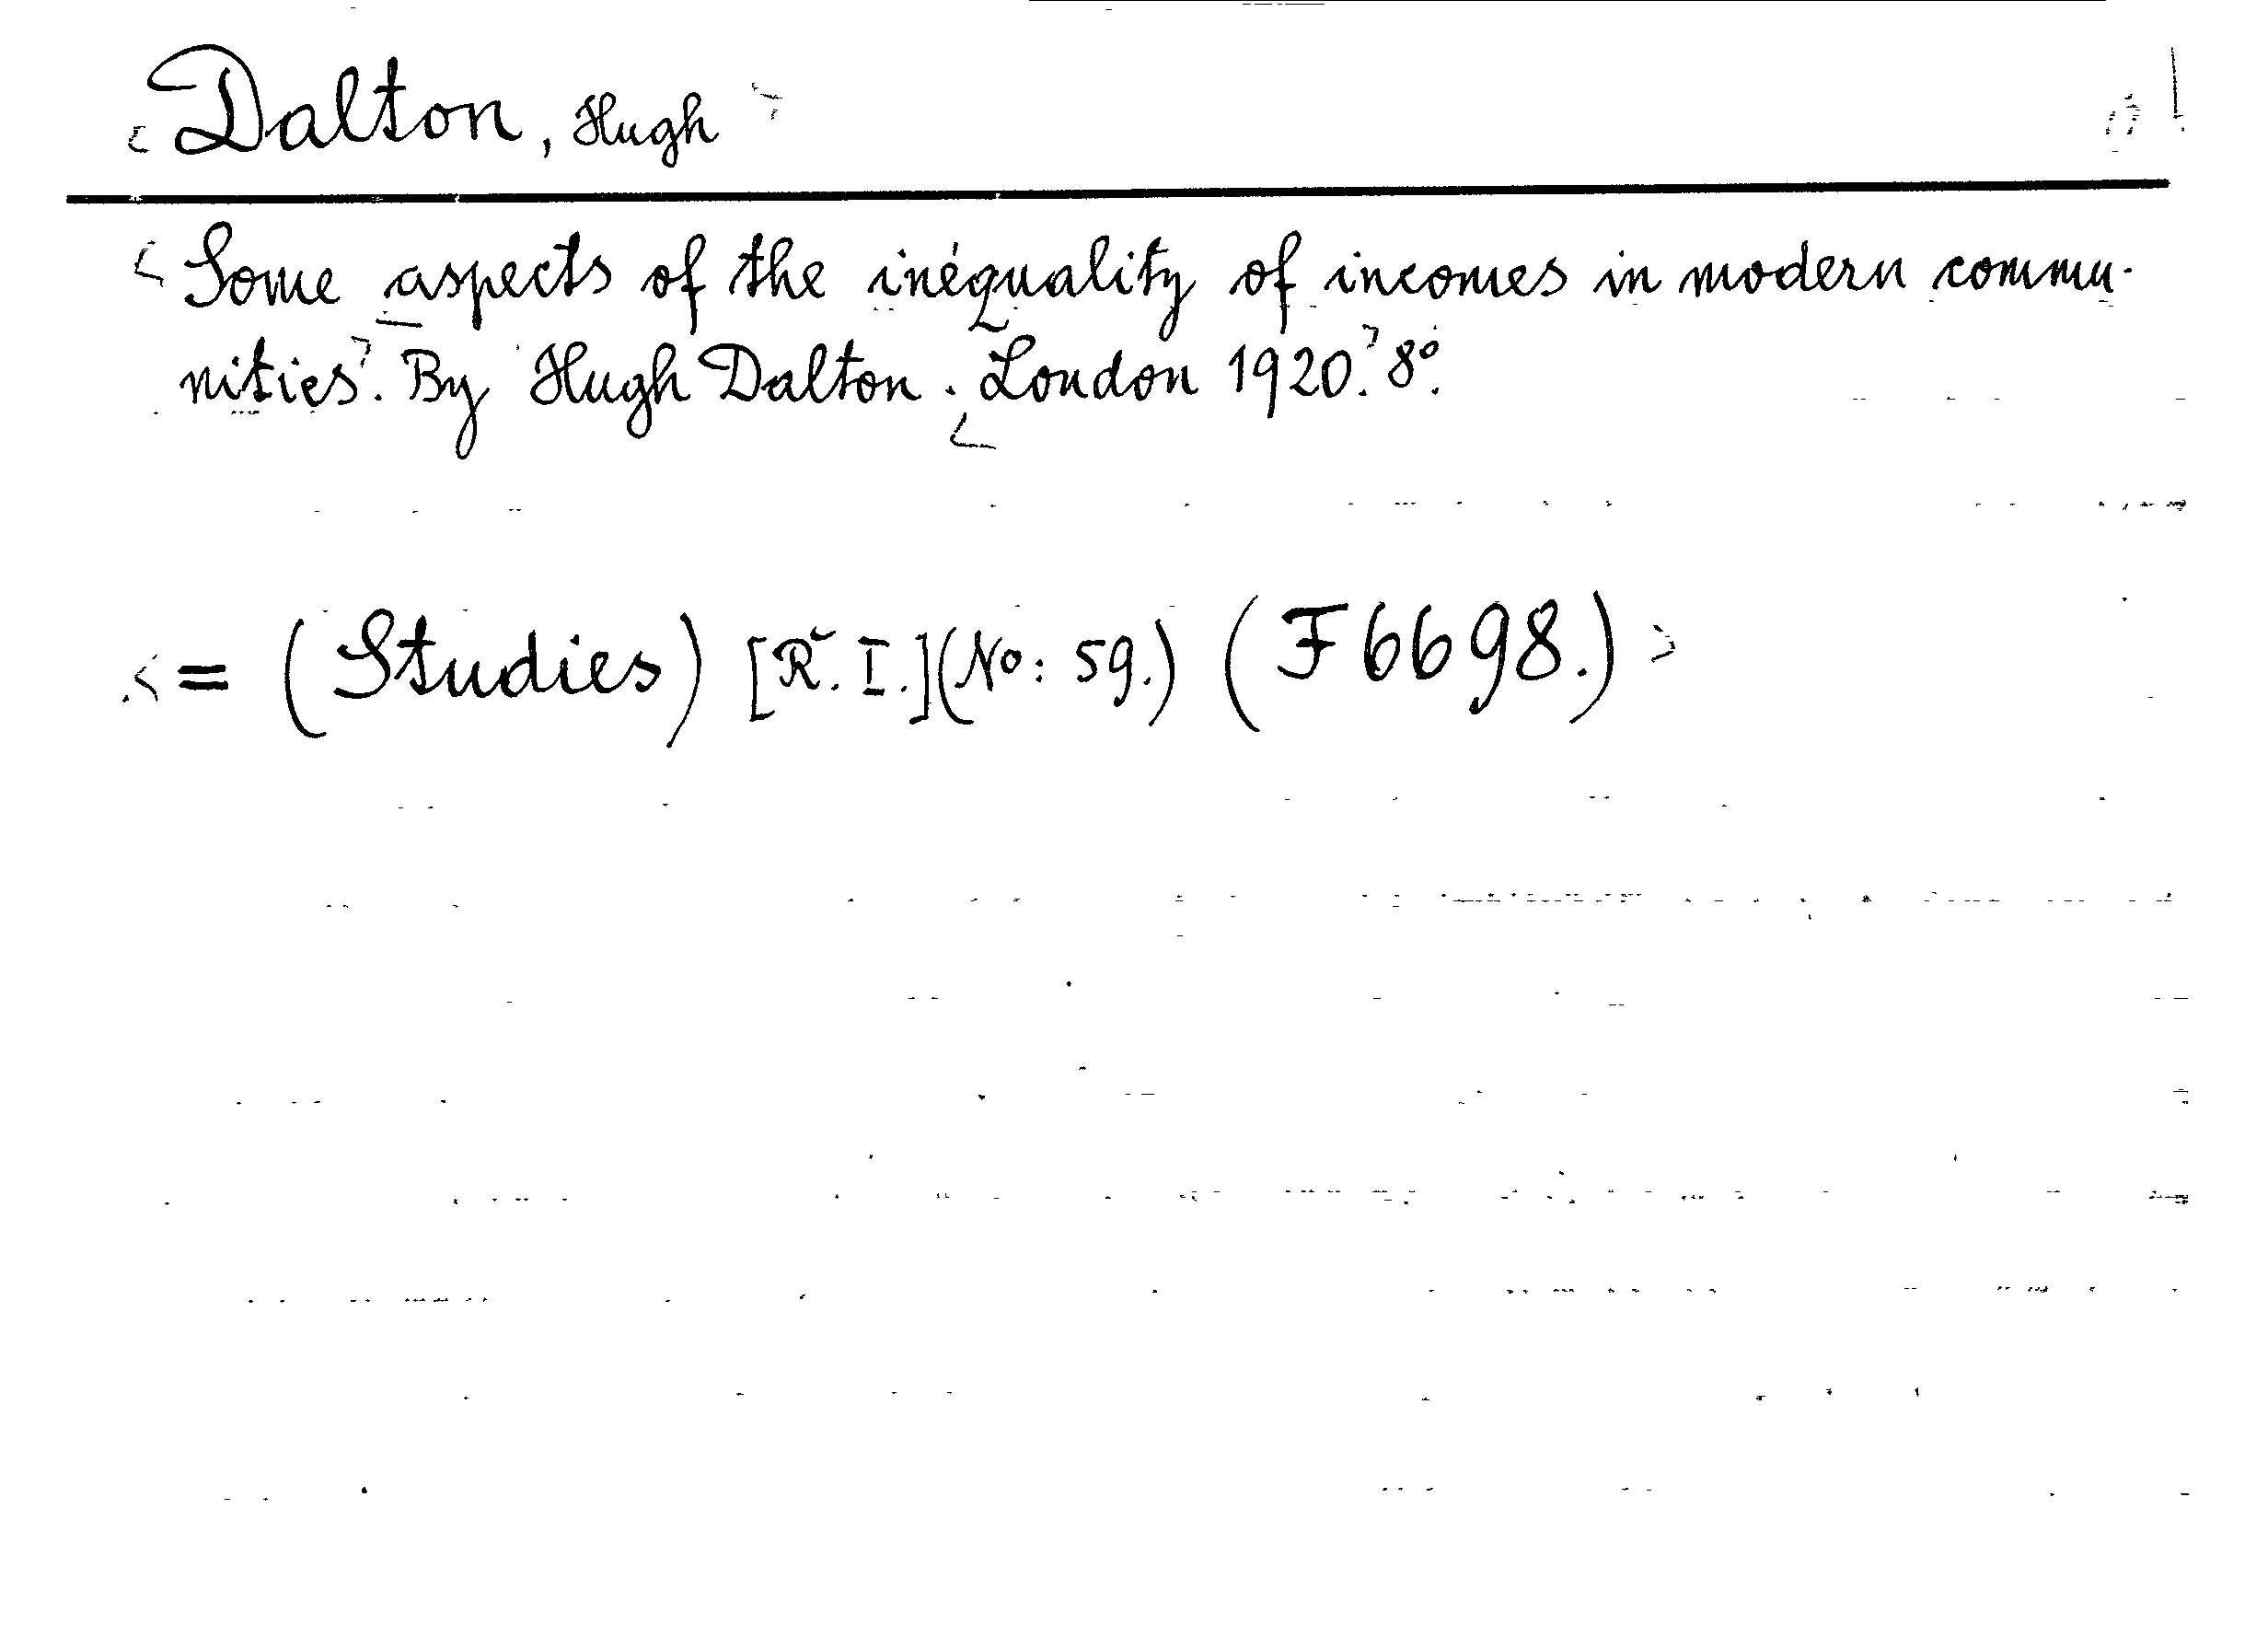 Dalton, Hugh
Some aspects of the inequality of incomes in modern commu-
nities. By Hugh Dalton. London 1920. 8°.
= (Studies) [R. I.] (No: 59.) (F 6698.)